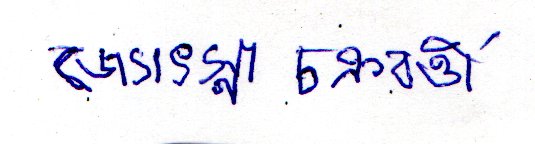 জ্যোৎস্না চক্রবর্ত্তী